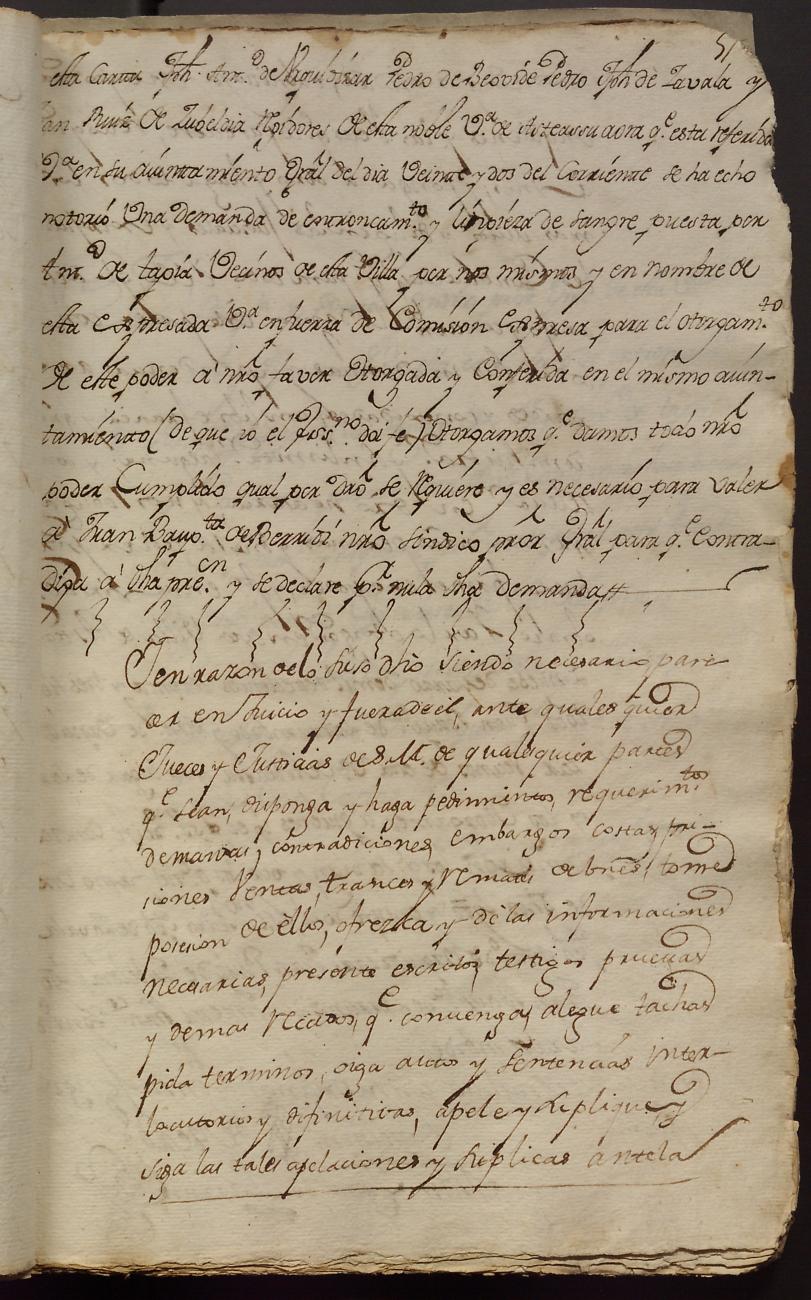 51
esta Carta Jph. Ant.º de Pedro de Beovide Pedro Jph de Zavala y
Ruiz de Lugeldia Rejidores de esta noble V.ª de Asteassu aora q.e esta referida
V.ª en su aiuntamiento Gral del dia Veinte y dos del Corriente se ha echo
notorio Una Demanda de entroncam.to y limpieza de Sangre puesta por
Ant.º de tapia Vecinos de esta Villa, por nos mismos y en nombre de
esta expresada V.ª en fuerza de Comision expresa para el otorgam.to
de este poder â nrõ favor Otorgada y Conferida en el mismo aiun-
tamiento (de que io el Ess.no doi fe) Otorgamos q.e damos todo nrõ
poder Cumplido qual por drõ se rrequiere y es necesario para valer
â Fran Bau.ta de nrõ Sindico pror Gral para q.e Contra-
diga â dha pre.cn y se declare p.r nula dha demanda
Y en razon de lo suso dho siendo necesario pare
cer en Juicio y fuera de el, ante quales quier
Jueces y Justicias de S. M. de quales quier partes
q.e sean, disponga y haga pedimientos, requerim.tos
demandas, contradiciones, embargos costas pri-
siones Ventas, trances y Remates de bnes, tome
posesion de ellos, ofrezca y dê las informaciones
necesarias, presente escritos, testigos pruevas
y demas Recados, q.e convenga, alegue tachas
pida terminos, oiga autos y sentencias inter-
locutorios y difinitivas, apele y suplique, y
siga las tales apelaciones y suplicas ante la